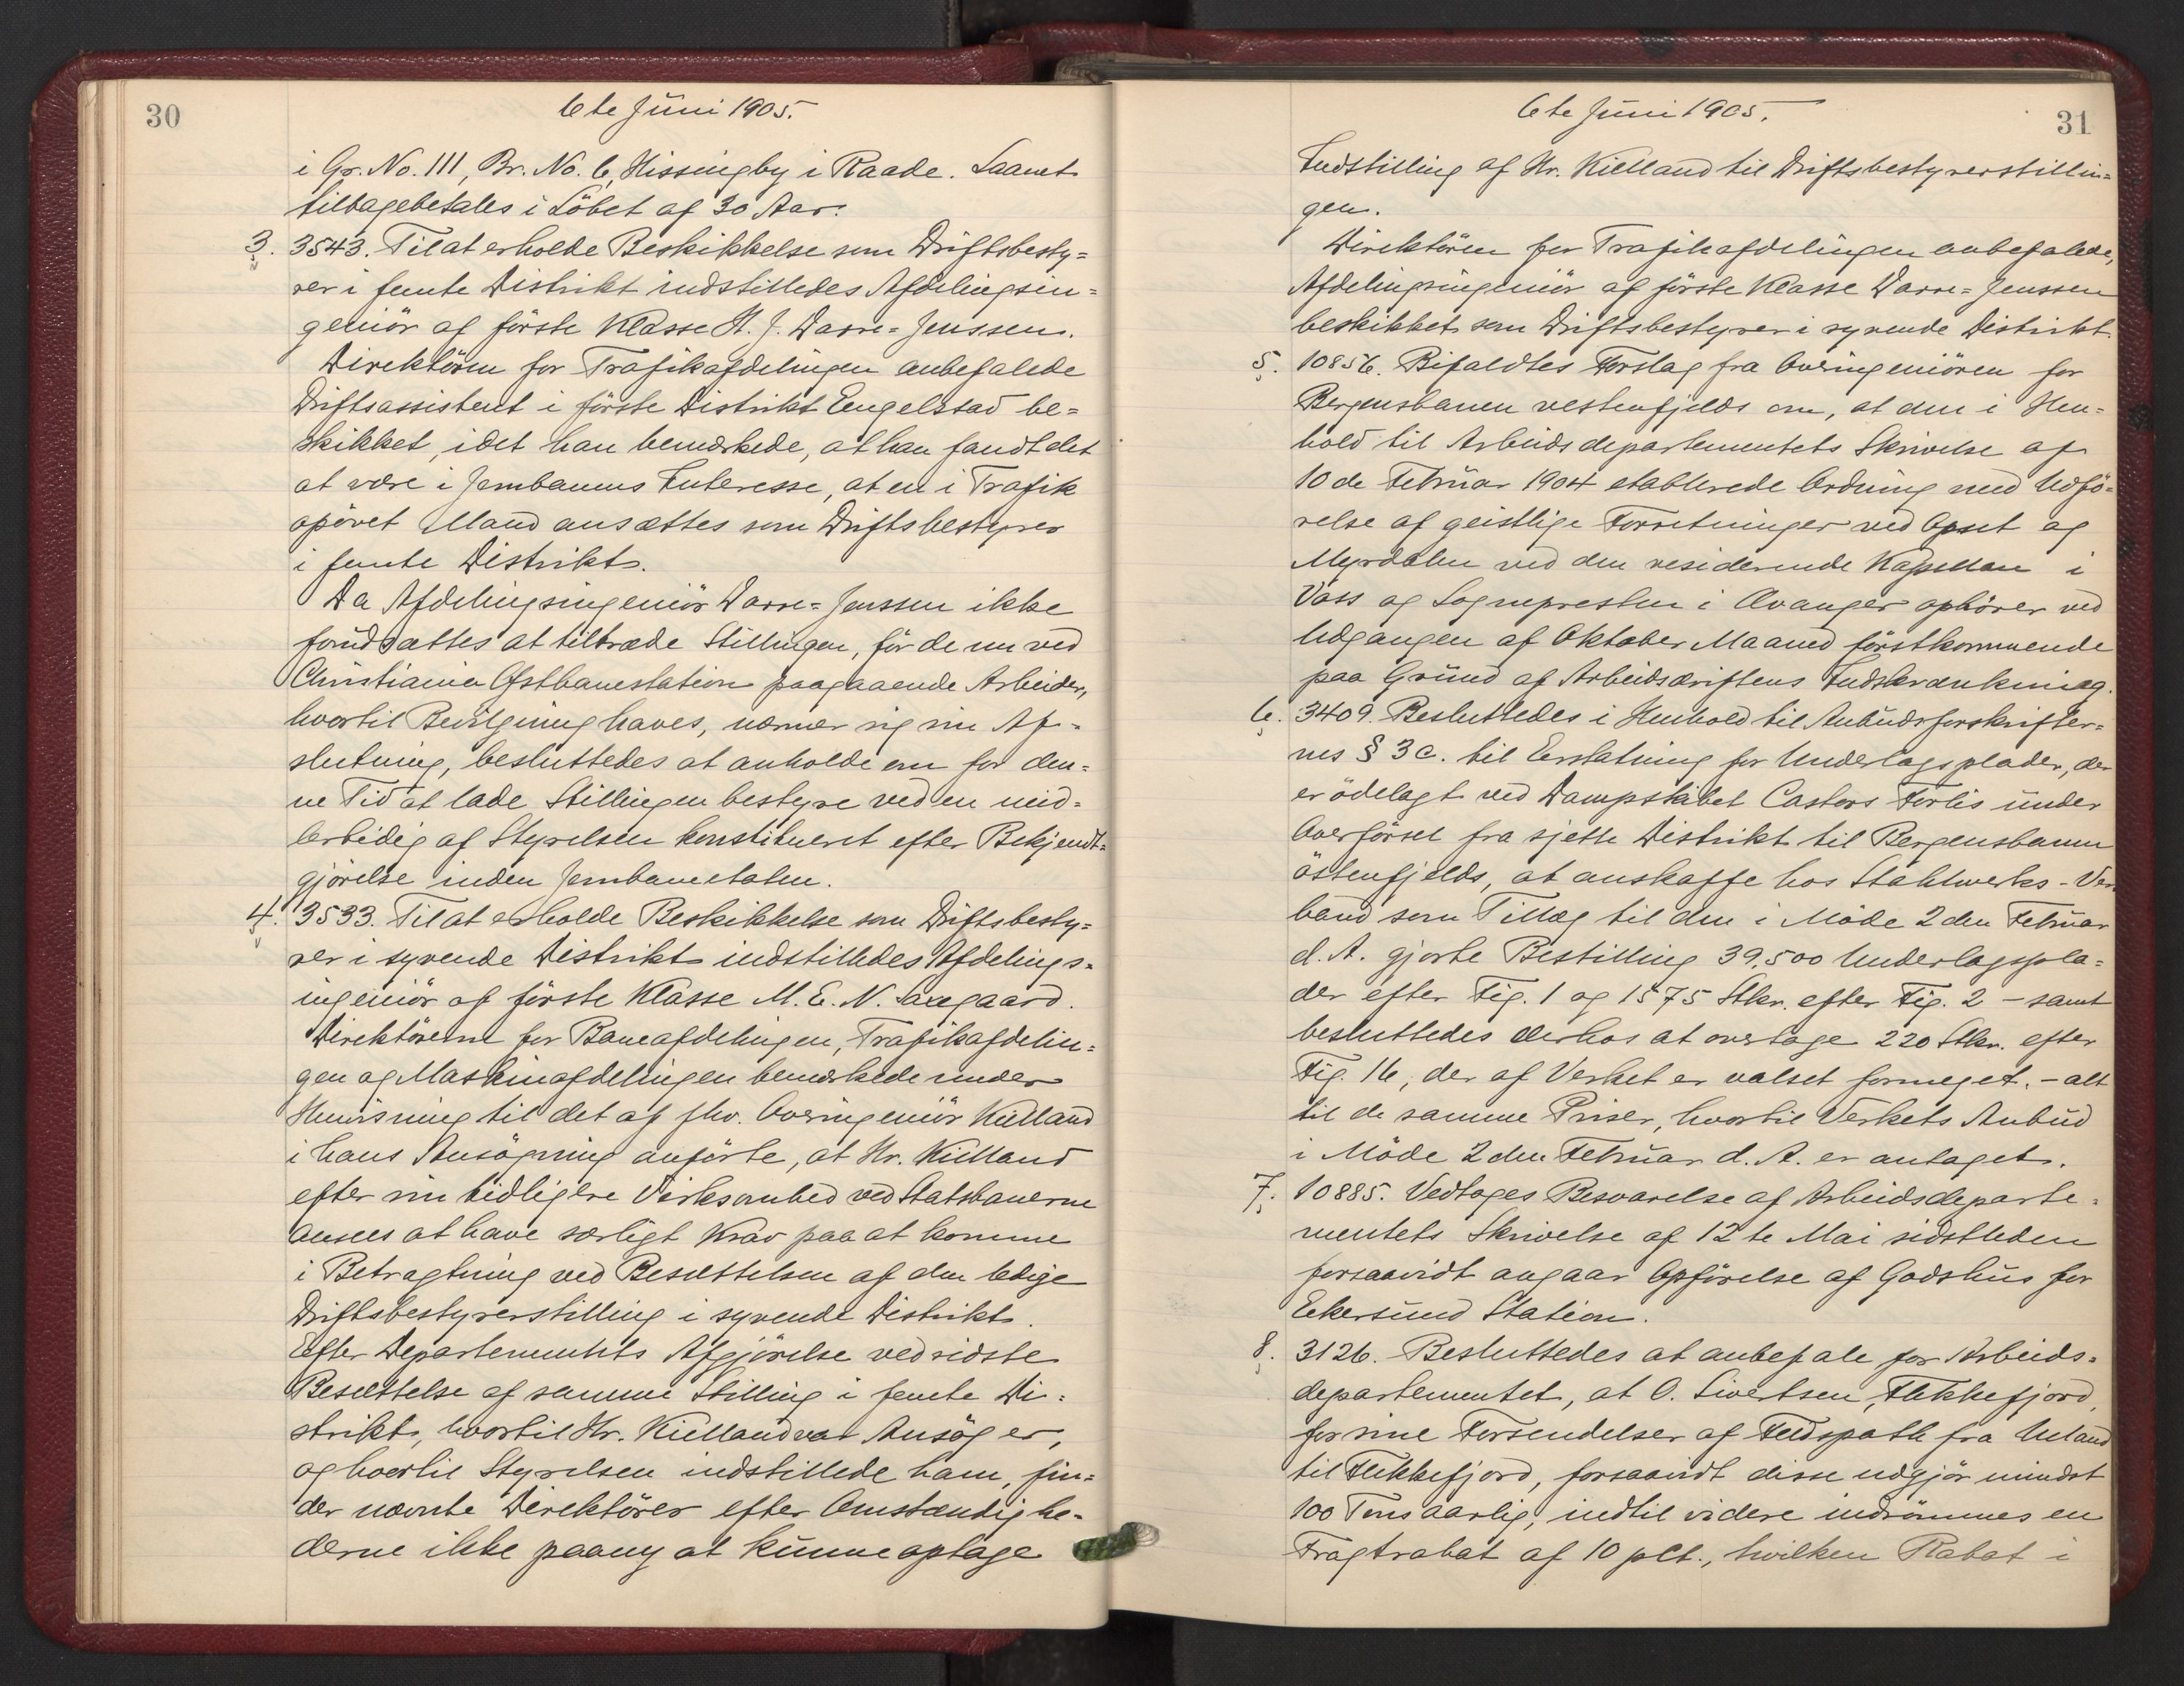 30
6te Juni 1905.
i Gr. No. 111, Br. No. 6, Hissingby i Raade. Laanet
tilbagebetales i Löbet af 30 Aar.
3. 3543. Til at erholde Beskikkelse som Driftsbesty=
rer i femte Distrikt indstilledes Afdelingsin=
geniör af förste Klasse H. J. Darre=Jenssen.
Direktören for Trafikafdelingen anbefalede
Driftsassistent i förste Distrikt Engelstad be=
skikket, idet han bemærkede, at han fandt det
at være i Jernbanens Interesse, at en i Trafik
opövet Mand ansættes som Driftsbestyrer
i femte Distrikt.
Da Afdelingsingeniör Darre=Jenssen ikke
forudsættes at tiltræde Stillingen, för de nu ved
Christiania Østbanestation paagaaende Arbeider,
hvortil Bevilgning haves, nærmer sig sin Af=
slutning, besluttedes at anholde om for den=
ne Tid at lade Stillingen bestyre ved en mid=
lertidig af Styrelsen konstitueret efter Bekjendt=
gjörelse inden Jernbaneetaten.
4. 3533. Til at erholde Beskikkelse som Driftsbesty=
rer i syvende Distrikt indstilledes Afdelings=
ingeniör af förste Klasse M. E. N. Saxegaard.
Direktörerne for Baneafdelingen, Trafikafdelin=
gen og Maskinafdelingen bemærkede under
Henvisning til det af fhv. Overingeniör Kielland
i hans Ansögning anförte, at Hr. Kielland
efter sin tidligere Virksomhed ved Statsbanerne
ansees at have særligt Krav paa at komme
i Betragtning ved Besættelsen af den ledige
Driftsbestyrerstilling i syvende Distrikt.
Efter Departementets Afgjörelse ved sidste
Besættelse af samme Stilling i femte Di=
strikt, hvortil Hr. Kielland var Ansöger,
og hvortil Styrelsen indstillede ham, fin=
der nævnte Direktörer efter Omstændighe=
derne ikke paany at kunne optage
6te Juni 1905.
31
Indstilling af Hr. Kielland til Driftsbestyrerstillin=
gen.
Direktören for Trafikafdelingen anbefalede,
Afdelingsingeniör af förste Klasse Darre=Jenssen
beskikket som Driftsbestyrer i syvende Distrikt.
5. 10856. Bifaldtes Forslag fra Overingeniören for
Bergensbanen vestenfjelds om, at den i Hen=
hold til Arbeidsdepartementets Skrivelse af
10de Februar 1904 etablerede Ordning med Udfö=
relse af geistlige Forretninger ved Opset og
Myrdalen ved den residerende Kapellan i
Voss og Sognepresten i Evanger ophörer ved
Udgangen af Oktober Maaned förstkommende
paa Grund af Arbeidsdriftens Indskrænkning.
6. 3409. Besluttedes i Henhold til Anbudsforskrifter=
nes § 3 c. til Erstatning for Underlagsplader, der
er ödelagt ved Dampskibet Castors Forlis under
Overförsel fra sjette Distrikt til Bergensbanen
östenfjelds, at anskaffe hos Stahlwerks-Ver
band som Tillæg til den i Möde 2den Februar
d. A. gjorte Bestilling 39.500 Underlagspla=
der efter Fig. 1 og 1575 Stkr. efter Fig. 2 – samt
besluttedes derhos at overtage 220 Stkr. efter
Fig. 16, der af Verket er valset formeget, – alt
til de samme Priser, hvortil Verkets Anbud
i Möde 2den Februar d. A. er antaget.
7. 10885. Vedtoges Besvarelse af Arbeidsdeparte=
mentets Skrivelse af 12te Mai sidstleden
forsaavidt angaar Opförelse af Godshus for
Ekersund Station.
8. 3126. Besluttedes at anbefale for Arbeids=
departementet, at O. Sivertsen, Flekkefjord,
for sine Forsendelser af Feldspath fra Ueland
til Flekkefjord, forsaavidt disse udgjör mindst
100 Tons aarlig, indtil videre indrömmes en
Fragtrabat af 10 pCt., hvilken Rabat i